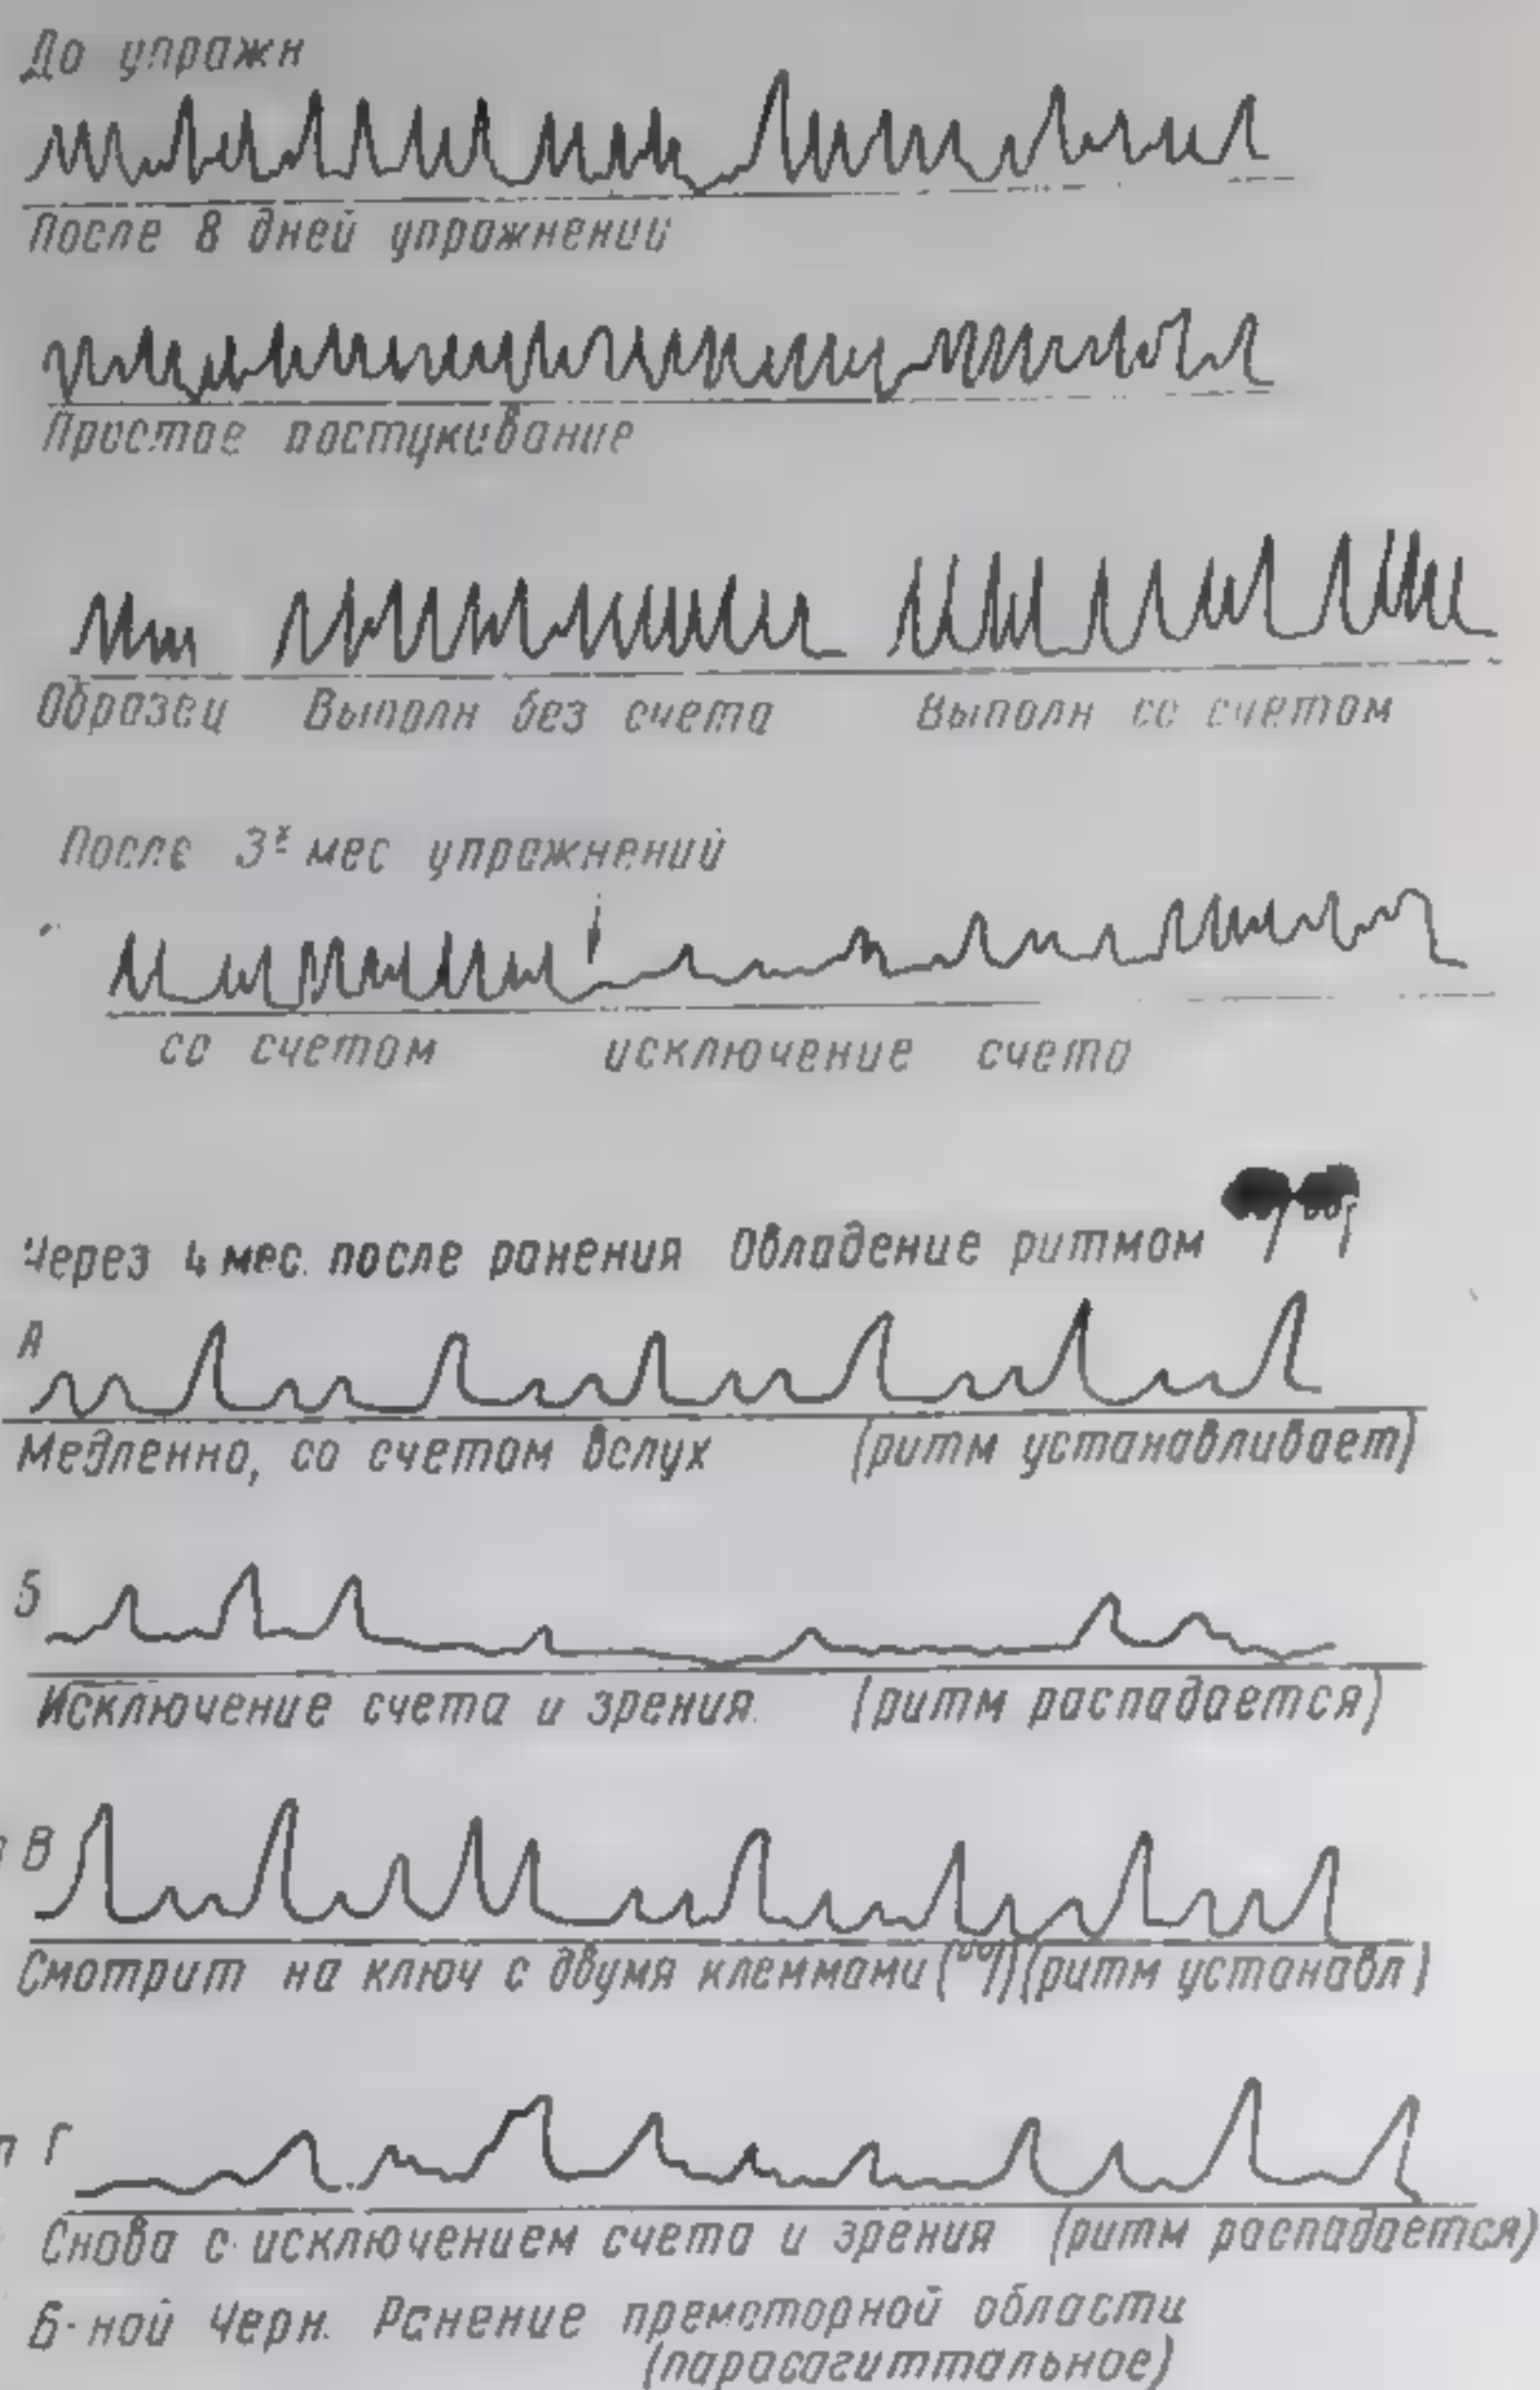 До упражн
После 8 дней упражнений
Простое постукивание
Образец Выполн без счета Выполн со счетом
После 3х мес упражнений
со счетом исключение счета
Через 4 мес. после ранения Обладение ритмом
А
Медленно, со счетом вслух (ритм устанавливает)
Б
Исключение счета и зрения. (ритм распадается)
В
Смотрит на ключ с двумя клеммами (ритм устанавл)
Г
Снова с исключением счета и зрения (ритм распадается)
Б-ной Черн. Ранение премоторной области
(парасагиттальное)